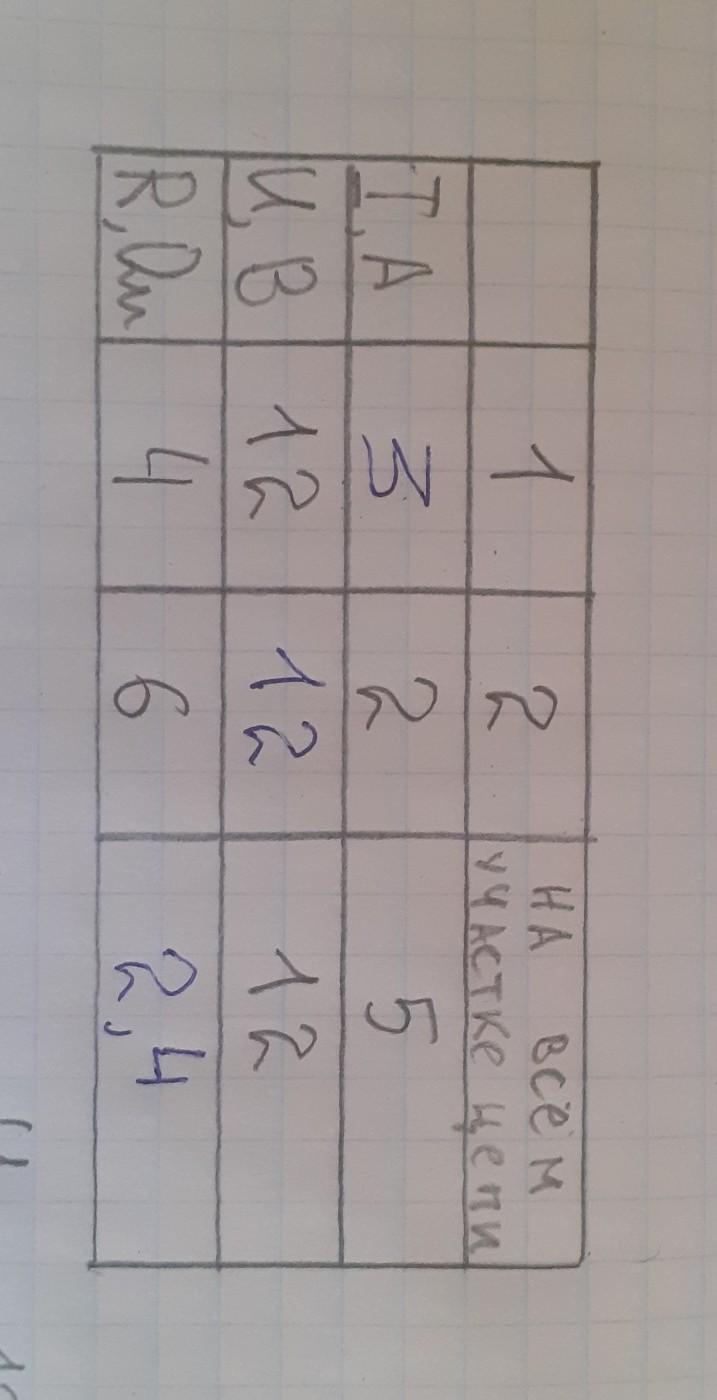 1 2 НА ВСЁМ
УЧАСТКЕ ЦЕПИ
I, A 3 2 5
U, B 12 12 12
R, Ом 4 6 2,4